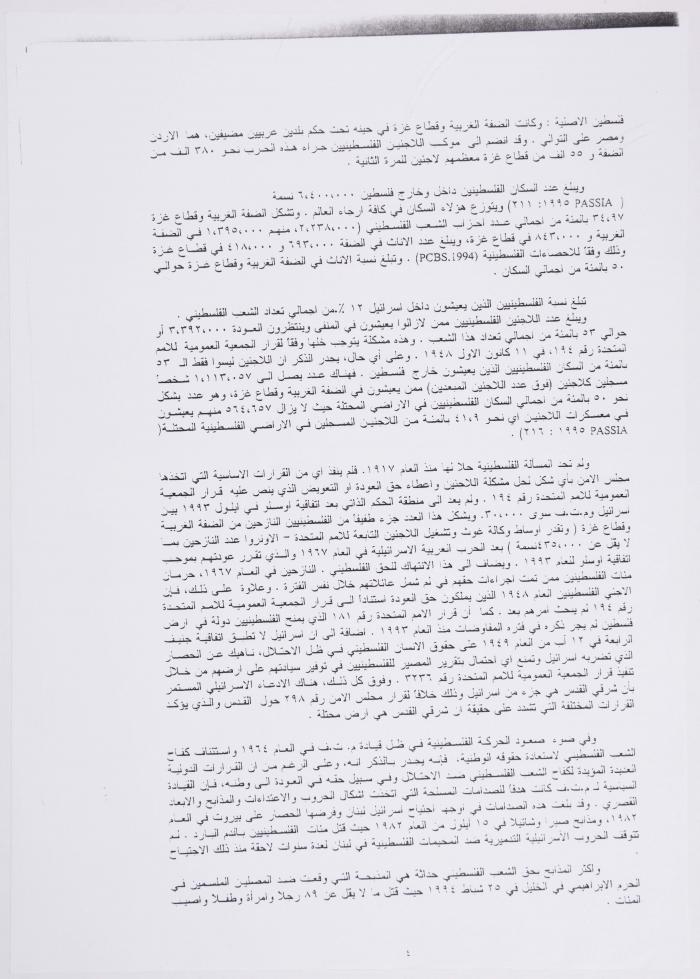 فلسطين الاصلية : وكانت الضفة الغربية وقطاع غزة في حينه تحت حكم بلدين عربيين مضيفين، هما الاردن
ومصر على التوالي . وقد انضم الى موكب اللاجئين الفلسطينيين جراء هذه الحرب نحو ٣٨٠ الف من
الضفة و ٥٥ الف من قطاع غزة معظمهم لاجئين للمرة الثانية .
ويبلغ عدد السكان الفلسطينين داخل وخارج فلسطين ٦،٤٠٠،٠٠٠ نسمة
( PASSIA ١٩٩٥: ٢١١) ويتوزع هؤلاء السكان في كافة ارجاء العالم . وتشكل الضفة الغربية وقطاع غزة
٣٤،٩٧ بالمئة من اجمالي عدد احزاب الشعب الفلسطيني (٢،٢٣٨،٠٠٠، منهم ١،٣٩٥،٠٠٠ في الضفة
الغربية و ٨٤٣،٠٠٠ في قطاع غزة، ويبلغ عدد الاناث في الضفة ٦٩٣،٠٠٠ و ٤١٨،٠٠٠ في قطاع غزة
وذلك وفقاً للاحصاءات الفلسطينية (PCBS،1994) . وتبلغ نسبة الاناث في الضفة الغربية وقطاع غزة حوالي
٥٠ بالمئة من اجمالي السكان .
تبلغ نسبة الفلسطينيين الذين يعيشون داخل اسرائيل ١٢ ٪،من اجمالي تعداد الشعب الفلسطيني .
ويبلغ عدد اللاجئين الفلسطينيين ممن لازالوا يعيشون في المنفى وينتظرون العودة ٣،٣٩٢،٠٠٠ أو
حوالي ٥٣ بالمئة من اجمالي تعداد هذا الشعب . وهذه مشكلة يتوجب حلها وفقاً لقرار الجمعية العمومية للامم
المتحدة رقم ١٩٤، في ١١ كانون الاول ١٩٤٨ . وعلى أي حال، يجدر الذكر ان اللاجئين ليسوا فقط الـ ٥٣
بالمئة من السكان الفلسطينيين الذين يعيشون خارج فلسطين . فهناك عدد يصل الى ١،١١٣،٠٥٧ شخصاً
مسجلين كلاجئين (فوق عدد اللاجئين المبعدين) ممن يعيشون في الضفة الغربية وقطاع غزة، وهو عدد يشكل
نحو ٥٠ بالمئة من اجمالي السكان الفلسطينيين في الاراضي المحتلة حيث لا يزال ٥٦٤،٦٥٧ منهم يعيشون
في معسكرات اللاجئين اي نحو ٤١،٩ بالمئة من اللاجئين المسجلين في الاراضي الفلسطينية المحتلة(
PASSIA ١٩٩٥ : ٢١٦) .
ولم تجد المسألة الفلسطينية حلا لها منذ العام ١٩١٧. فلم ينفذ اي من القرارات الاساسية التي اتخذها
مجلس الامن بأي شكل لحل مشكلة اللاجئين واعطاء حق العودة او التعويض الذي ينص عليه قرار الجمعية
العمومية للامم المتحدة رقم ١٩٤ . ولم يعد الى منطقة الحكم الذاتي بعد اتفاقية اوسلو في ايلول ١٩٩٣ بين
اسرائيل وم.ت.ف سوى ٣٠،٠٠٠. ويشكل هذا العدد جزء طفيفاً من الفلسطينيين النازحين من الضفة الغربية
وقطاع غزة ( وتقدر اوساط وكالة غوث وتشغيل اللاجئين التابعة للامم المتحدة – الاونروا عدد النازحين بما
لا يقل عن ٤٣٥،٠٠٠نسمة ) بعد الحرب العربية الاسرائيلية في العام ١٩٦٧ والذي تقرر عودتهم بموجب
اتفاقية اوسلو للعام ١٩٩٣ . ويضاف الى هذا الانتهاك للحق الفلسطيني . النازحين في العام ١٩٦٧، حرمان
مئات الفلسطينيين ممن تمت اجراءات حقهم في لم شمل عائلاتهم خلال نفس الفترة . وعلاوة على ذلك، فإن
الاجئي الفلسطينين العام ١٩٤٨ الذين يملكون حق العودة استناداً الى قرار الجمعية العمومية للامم المتحدة
رقم ١٩٤ لم يبحث امرهم بعد . كما أن قرار الامم المتحدة رقم ١٨١ الذي يمنح الفلسطينيين دولة في ارض
فلسطين لم يجر ذكره في فتره المفاوضات منذ العام ١٩٩٣ . اضافة الى ان اسرائيل لا تطبق اتفاقية جنيف
الرابعة في ١٢ آب من العام ١٩٤٩ على حقوق الانسان الفلسطيني في ظل الاحتلال، ناهيك عن الحصار
الذي تضربه اسرائيل وتمنع اي احتمال بتقرير المصير للفلسطينيين في توفير سيادتهم على ارضهم من خلال
تنفيذ قرار الجمعية العمومية للامم المتحدة رقم ٣٢٣٦ . وفوق كل ذلك، هناك الادعاء الاسرائيلي المستمر
بأن شرقي القدس هي جزء من اسرائيل وذلك خلافاً لقرار مجلس الامن رقم ٢٩٨ حول القدس والذي يؤكد
القرارات المختلفة التي تشدد على حقيقة ان شرقي القدس هي ارض محتلة .
وفي ضوء صعود الحركة الفلسطينية في ظل قيادة م. ت.ف في العام ١٩٦٤ واستئناف كفاح
الشعب الفلسطيني لاستعادة حقوقه الوطنية، فإنه يجدر بالذكر انه، وعلى الرغم من ان القرارات الدولية
العديدة المؤيدة لكفاح الشعب الفلسطيني ضد الاحتلال وفي سبيل حقه في العودة الى وطنه، فإن القيادة
السياسية لـ م.ت.ف كانت هدفاً للصدامات المسلحة التي اتخذت اشكال الحروب والاعتداءات والمذابح والابعاد
القصري . وقد بلغت هذه الصدامات في اوجها اجتياح اسرائيل لبنان وفرضها الحصار على بيروت في العام
١٩٨٢، ومذابح صبرا وشاتيلا في ١٥ ايلول من العام ١٩٨٢ حيث قتل مئات الفلسطينيين بالدم البارد . لم
تتوقف الحروب الاسرائيلية التدميرية ضد المخيمات الفلسطينية في لبنان لعدة سنوات لاحقة منذ ذلك الاجتياح
.
واكثر المذابح بحق الشعب الفلسطيني حداثة هي المذبحة التي وقعت ضد المصلين المسلمين في
الحرم الابراهيمي في الخليل في ٢٥ شباط ١٩٩٤ حيث قتل ما لا يقل عن ٨٩ رجلا وامرأة وطفلاً واصيب
المئات .
٤